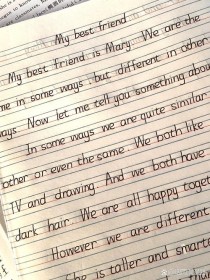 My best friend
My best friend is Mary. We are the
me in some ways but different in other
ays. Now let me tell you something about
In some ways we are quite similar
other or even the same. We both like
TV and drawing. And we both have
dark hair. We are all happy toget
However we are different
She is taller and smarte